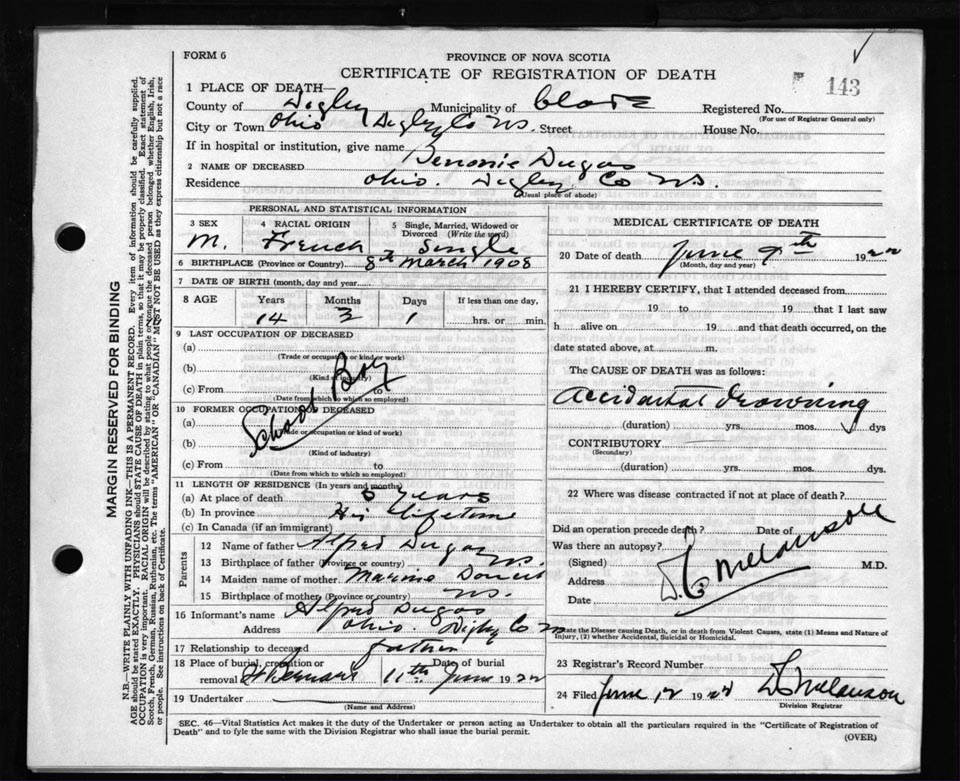 FORM 6
PROVINCE OF NOVA SCOTIA
CERTIFICATE OF REGISTRATION OF DEATH
143
1 PLACE OF DEATH—
County of Digby Municipality of Clare Registered No.
(For use of Registrar General only)
City or Town Ohio Digby Co NS. Street House No.
If in hospital or institution, give name
2 NAME OF DECEASED Benonie Dugas
Residence Ohio. Digby Co NS.
(Usual place of abode)
PERSONAL AND STATISTICAL INFORMATION
3 SEX M.
4 RACIAL ORIGIN French
5 Single, Married, Widowed or Divorced (Write the word) Single
6 BIRTHPLACE (Province or Country) 8th March 1908
7 DATE OF BIRTH (month, day and year)
8 AGE Years Months Days If less than one day,
14 3 1 hrs. or min.
9 LAST OCCUPATION OF DECEASED
(a)
(Trade or occupation or kind of work)
(b)
(Kind of industry)
(c) From to
(Date from which to which so employed)
School Boy
10 FORMER OCCUPATION OF DECEASED
(a)
(Trade or occupation or kind of work)
(b)
(Kind of industry)
(c) From to
(Date from which to which so employed)
11 LENGTH OF RESIDENCE (In years and months)
(a) At place of death years
(b) In province His lifetime
(c) In Canada (if an immigrant)
Parents
12 Name of father Alfred Dugas
13 Birthplace of father (Province or country) NS.
14 Maiden name of mother Doucet
15 Birthplace of mother (Province or country) NS.
16 Informant's name Alfred Dugas
Address Ohio. Digby Co NS
17 Relationship to deceased father
18 Place of burial, cremation or Date of burial
removal St Bernard 11th June 1922
19 Undertaker
(Name and Address)
MEDICAL CERTIFICATE OF DEATH
20 Date of death June 9th 1922
(Month, day and year)
21 I HEREBY CERTIFY, that I attended deceased from
19 to 19 that I last saw
h alive on 19 and that death occurred, on the
date stated above, at m.
The CAUSE OF DEATH was as follows:
Accidental drowning
(duration) yrs. mos. dys
CONTRIBUTORY
(Secondary)
(duration) yrs. mos. dys.
22 Where was disease contracted if not at place of death?
Did an operation precede death? Date of
Was there an autopsy?
(Signed) M.D.
Address
Date
Melanson
State the Disease causing Death, or in death from Violent Causes, state (1) Means and Nature of
Injury, (2) whether Accidental, Suicidal or Homicidal.
23 Registrar's Record Number
24 Filed June 12 19 Melanson
Division Registrar
SEC. 46—Vital Statistics Act makes it the duty of the Undertaker or person acting as Undertaker to obtain all the particulars required in the "Certificate of Registration of
Death" and to fyle the same with the Division Registrar who shall issue the burial permit.
(OVER)
MARGIN RESERVED FOR BINDING
N.B.—WRITE PLAINLY WITH UNFADING INK—THIS IS A PERMANENT RECORD. Every item of information should be carefully supplied.
AGE should be stated EXACTLY. PHYSICIANS should STATE CAUSE OF DEATH in plain terms, so that it may be properly classified. Exact statement of
OCCUPATION is very important. RACIAL ORIGIN will be described by stating to what people or tongue the deceased person belonged whether English, Irish,
Scotch, French, German, Russian, Ruthenian, etc. The terms "AMERICAN" OR "CANADIAN" MUST NOT BE USED as they express citizenship but not a race
or people. See instructions on back of Certificate.